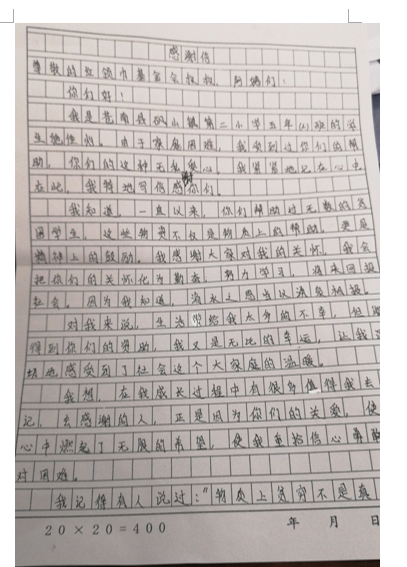 感谢信
尊敬的红领巾基金会叔叔、阿姨们:
你们好!
我是苍南县矾山镇第二小学五年(1)班的学
生 由于家庭困难,我受到过你们的帮
助,你们的这种无私爱心,我紧紧地记在心中
在此,我特地写信感谢你们。
我知道,一直以来,你们帮助过无数的贫
困学生,这些物资不仅是物质上的帮助,更是
精神上的鼓励。我感谢大家对我的关怀。我会
把你们的关怀化为勤奋,努力学习,将来回报
社会。因为我知道,滴水之恩当以涌泉相报。
对我来说,生活 给我太多的不幸,但
得到你们的资助,我又是无比的幸运,让我
切地感受到了社会这个大家庭的温暖。
我想,在我成长过程中有很多值得我去
记,去感谢的人,正是因为你们的关爱,使
心中燃起了无限的希望,使我重拾信心勇敢
对困难。
我记得有人说过:"物质上贫穷不是真
20×20=400 年 月 日